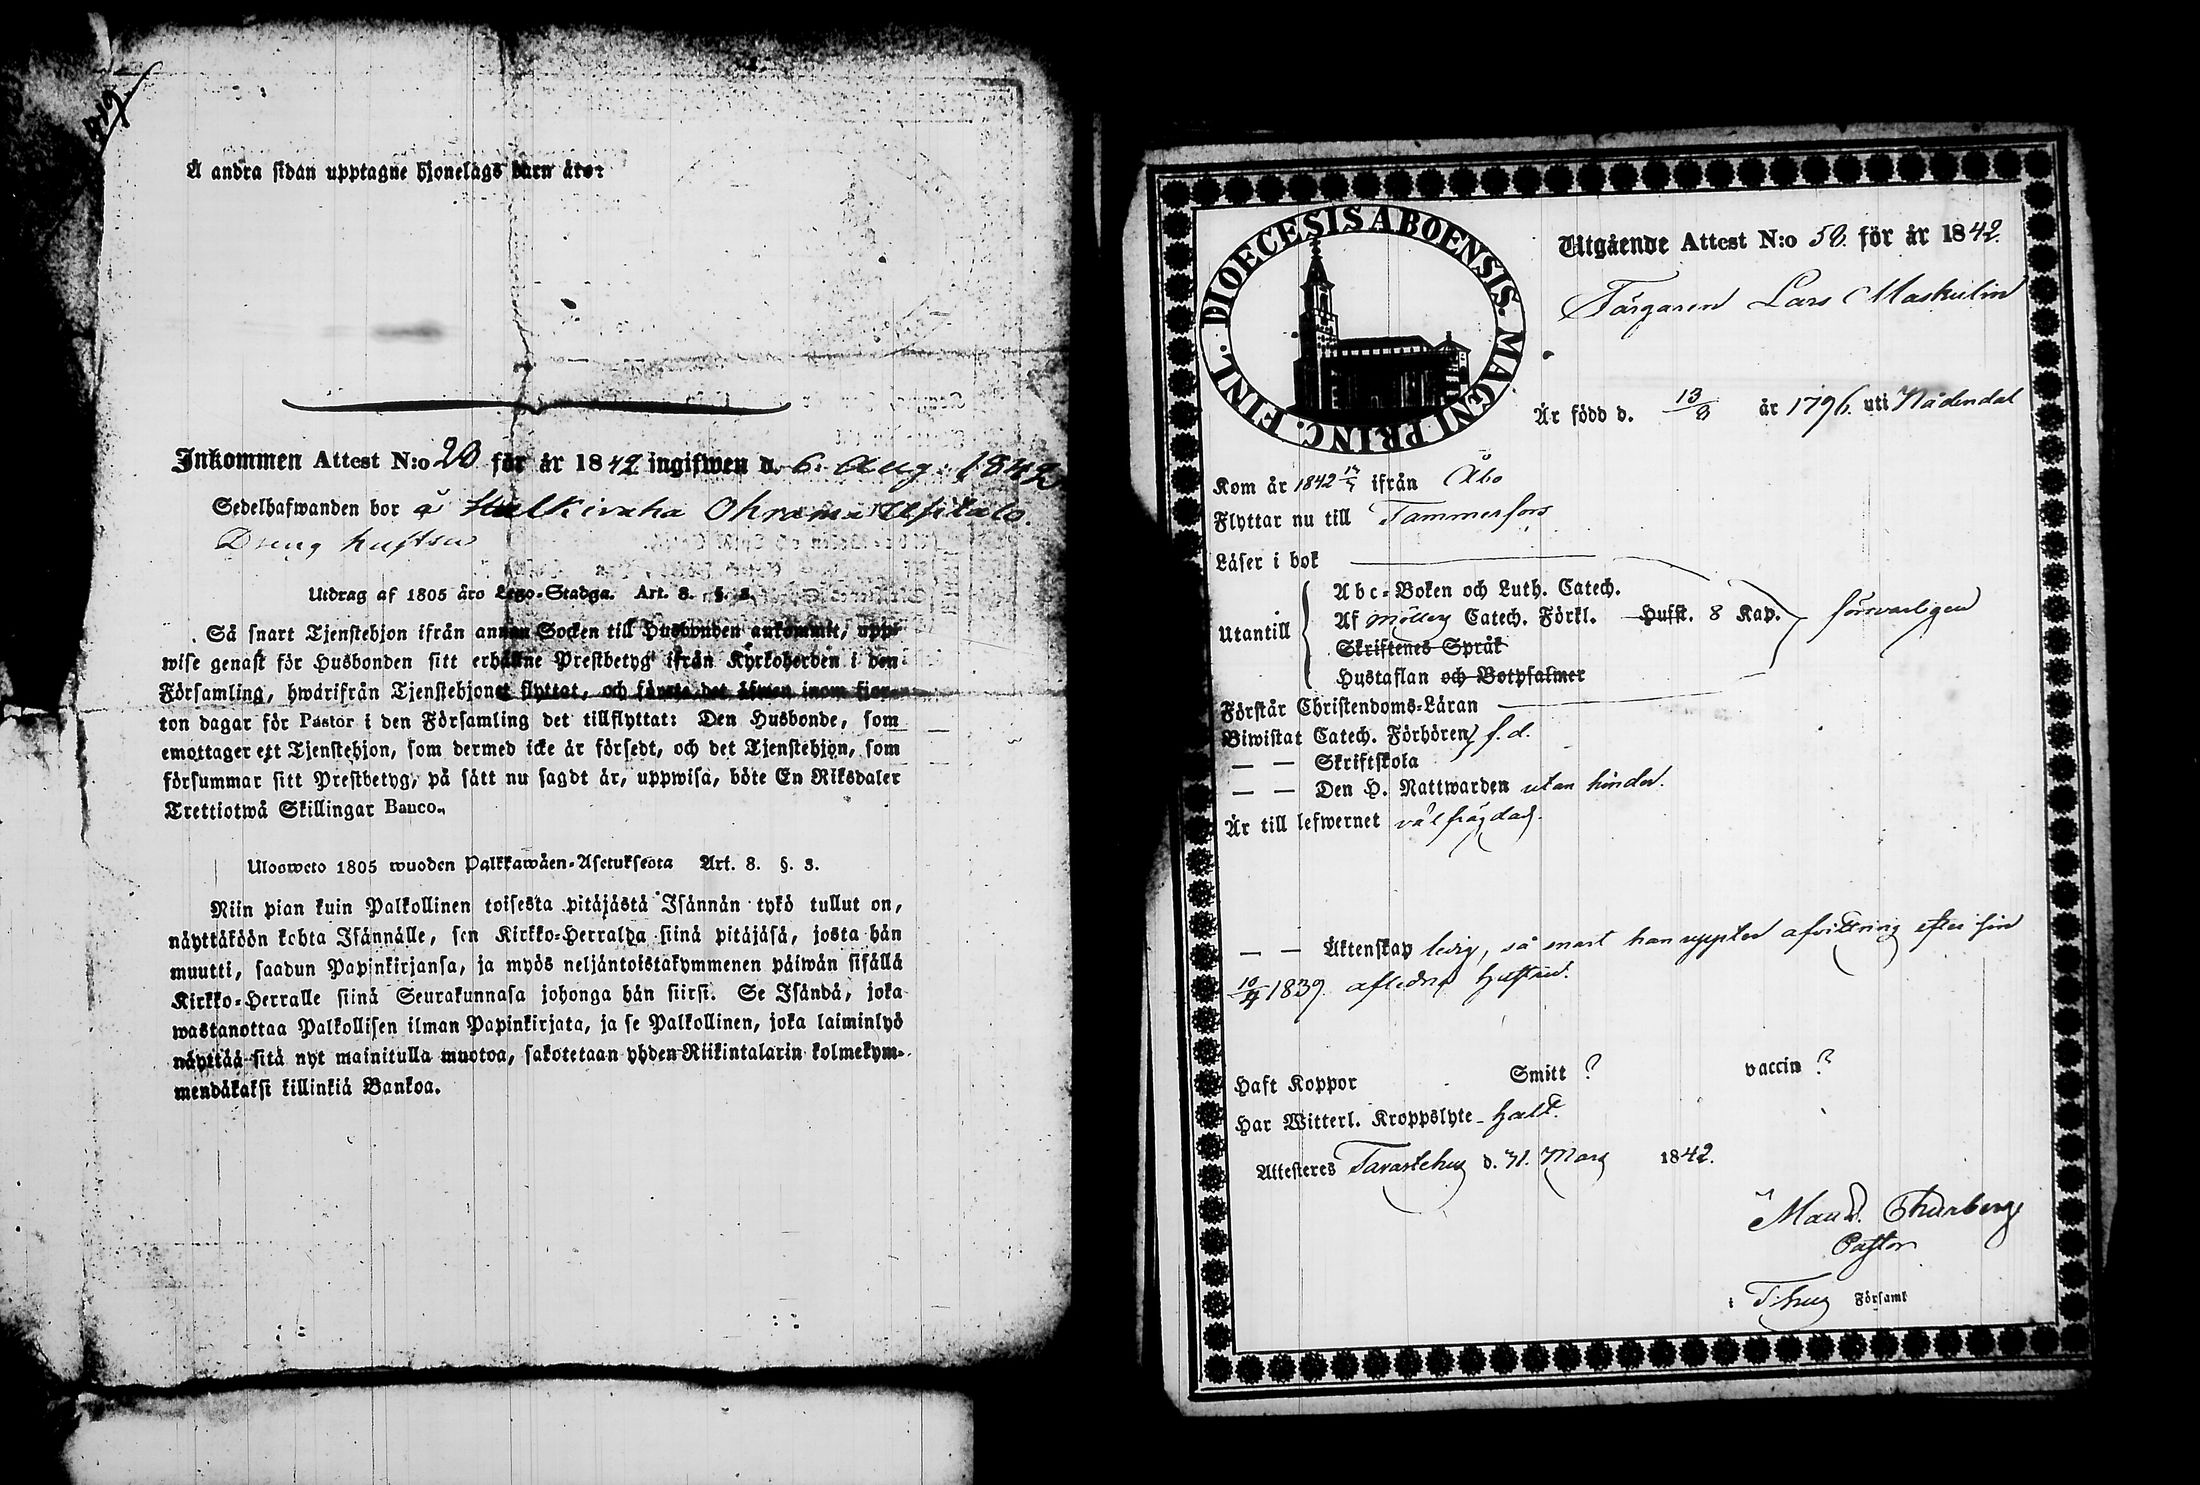 419
Å andra sidan upptagne hjonelags barn äro:
Inkommen Attest N:o 20 för år 1842 ingifwen d. 6. Aug. 1842
Sedelhafwanden bor å Hulkivaha Ohrama Usitalo.
Dreng hustru
Utdrag af 1805 års Lego-Stadga. Art. 8. §. 3.
Så snart Tjenstehjon ifrån annan Socken till Husbonden ankommit, upp-
wise genast för Husbonden sitt erhållne Prestbetyg ifrån Kyrkoherden i den
Församling, hwarifrån Tjenstehjonet flyttat, och sånete det äfwen inom fjor-
ton dagar för Pastor i den Församling det tillflyttat: Den Husbonde, som
emottager ett Tjenstehjon, som dermed icke är försedt, och det Tjenstehjon, som
försummar sitt Prestbetyg, på sätt nu sagdt är, uppwisa, böte En Riksdaler
Trettiotwå Skillingar Banco.
Ulosweto 1805 wuoden Palkkawäen-Asetuksesta Art. 8. §. 3.
Niin pian kuin Palkollinen toisesta pitäjästä Isännän tykö tullut on,
näyttäköön kohta Isännälle, sen Kirkko-Herralda siinä pitäjäsä, josta hän
muutti, saadun Papinkirjansa, ja myös neljäntoistakymmenen päiwän sisällä
Kirkko-Herralle siinä Seurakunnasa johonga hän siirsi. Se Isändä, joka
wastanottaa Palkollisen ilman Papinkirjata, ja se Palkollinen, joka laiminlyö
näyttää sitä nyt mainitulla muotoa, sakotetaan yhden Riikintalarin kolmekym-
mendäkaksi killinkiä Bankoa.
DIOECESIS ABOENSIS. MAGNI PRINC. FINL.
Utgående Attest N:o 50. för år 1842.
Färgaren Lars Maskulin
Är född d. 13/3 år 1796. uti Nådendal
Kom år 1842 ifrån Åbo
Flyttar nu till Tammerfors
Läser i bok
Utantill
Abc-Boken och Luth. Catech.
Af Möllers Catech. Förkl. Husst. 8 Kap. försvarligen
Skriftenes Språk
Hustaflan och Botpsalmer
Förstår Christendoms-Läran
Biwistat Catech. Förhören f. d.
— — Skriftskola
— — Den H. Nattwarden utan hinder.
Är till lefwernet välfrägdad.
— — Äktenskap ledig, så snart han uppted afvittring efter sin
10/4 1839 aflidna hustru.
Haft Koppor Smitt ? vaccin ?
Har Witterl. Kroppslyte halt.
Attesteras Tavastehus d. 31. Mars 1842.
Maur. Thurberg
Pastor
i T:hus Församl